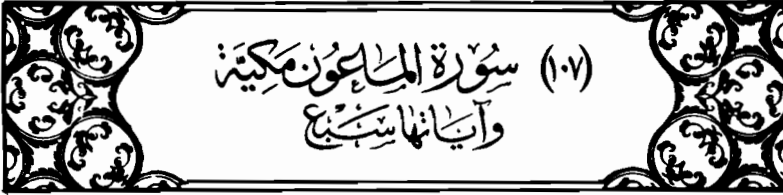 (١٠٧) سُورَة المَاعُون مَكيَّة
وَآيَاتهَا سَبْعٌ